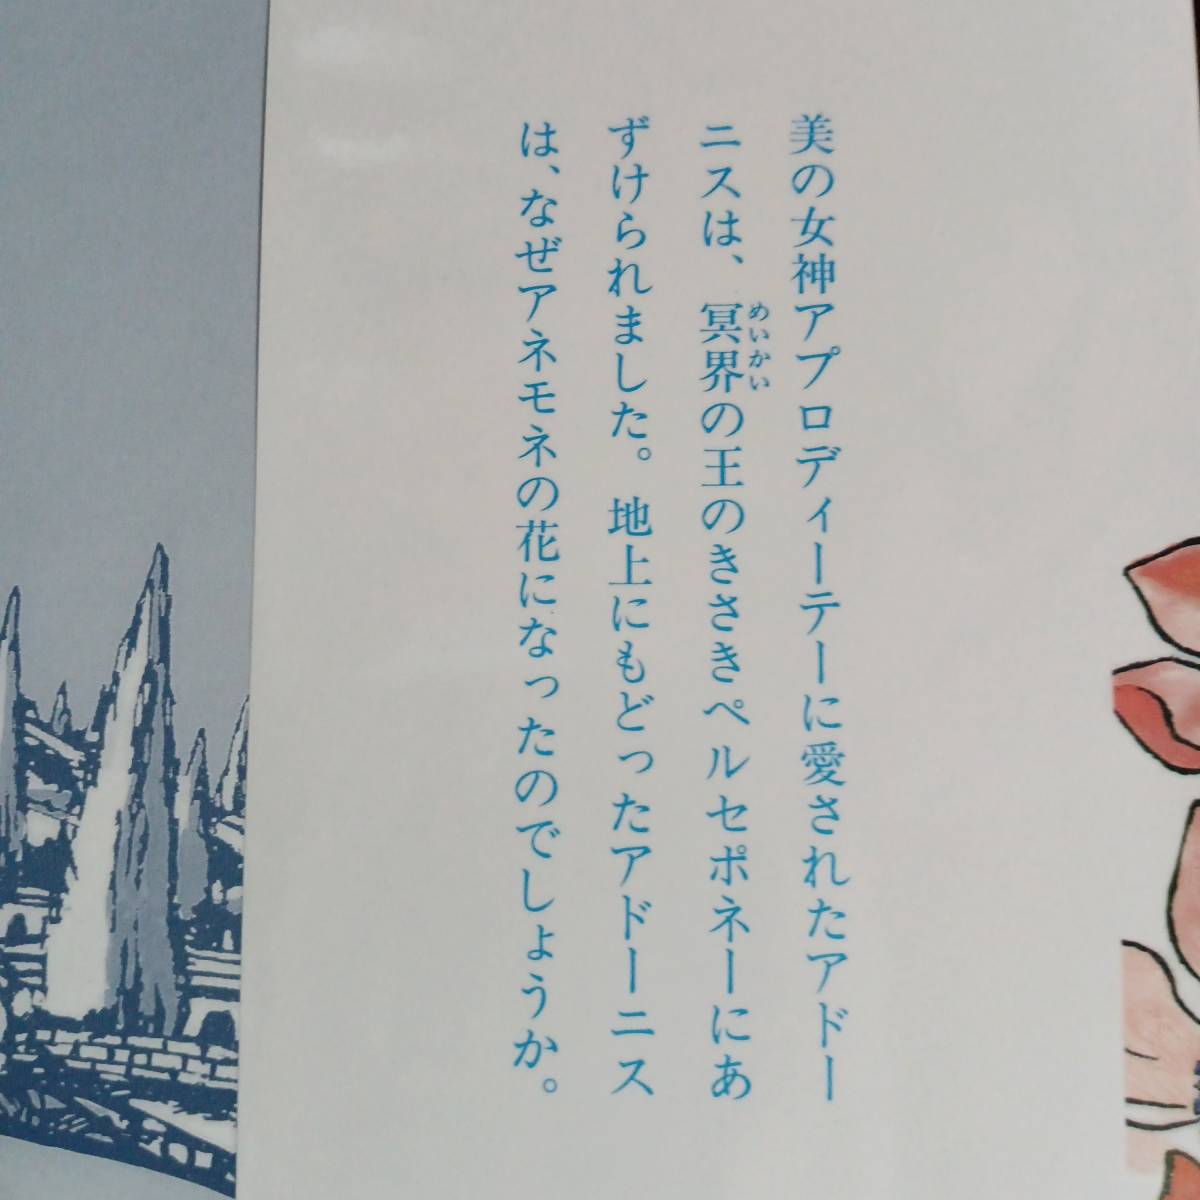 美の女神アプロディーテーに愛されたアドー
ニスは、冥界の王のきさきペルセポネーにあ
めいかい
ずけられました。地上にもどったアドーニス
は、なぜアネモネの花になったのでしょうか。